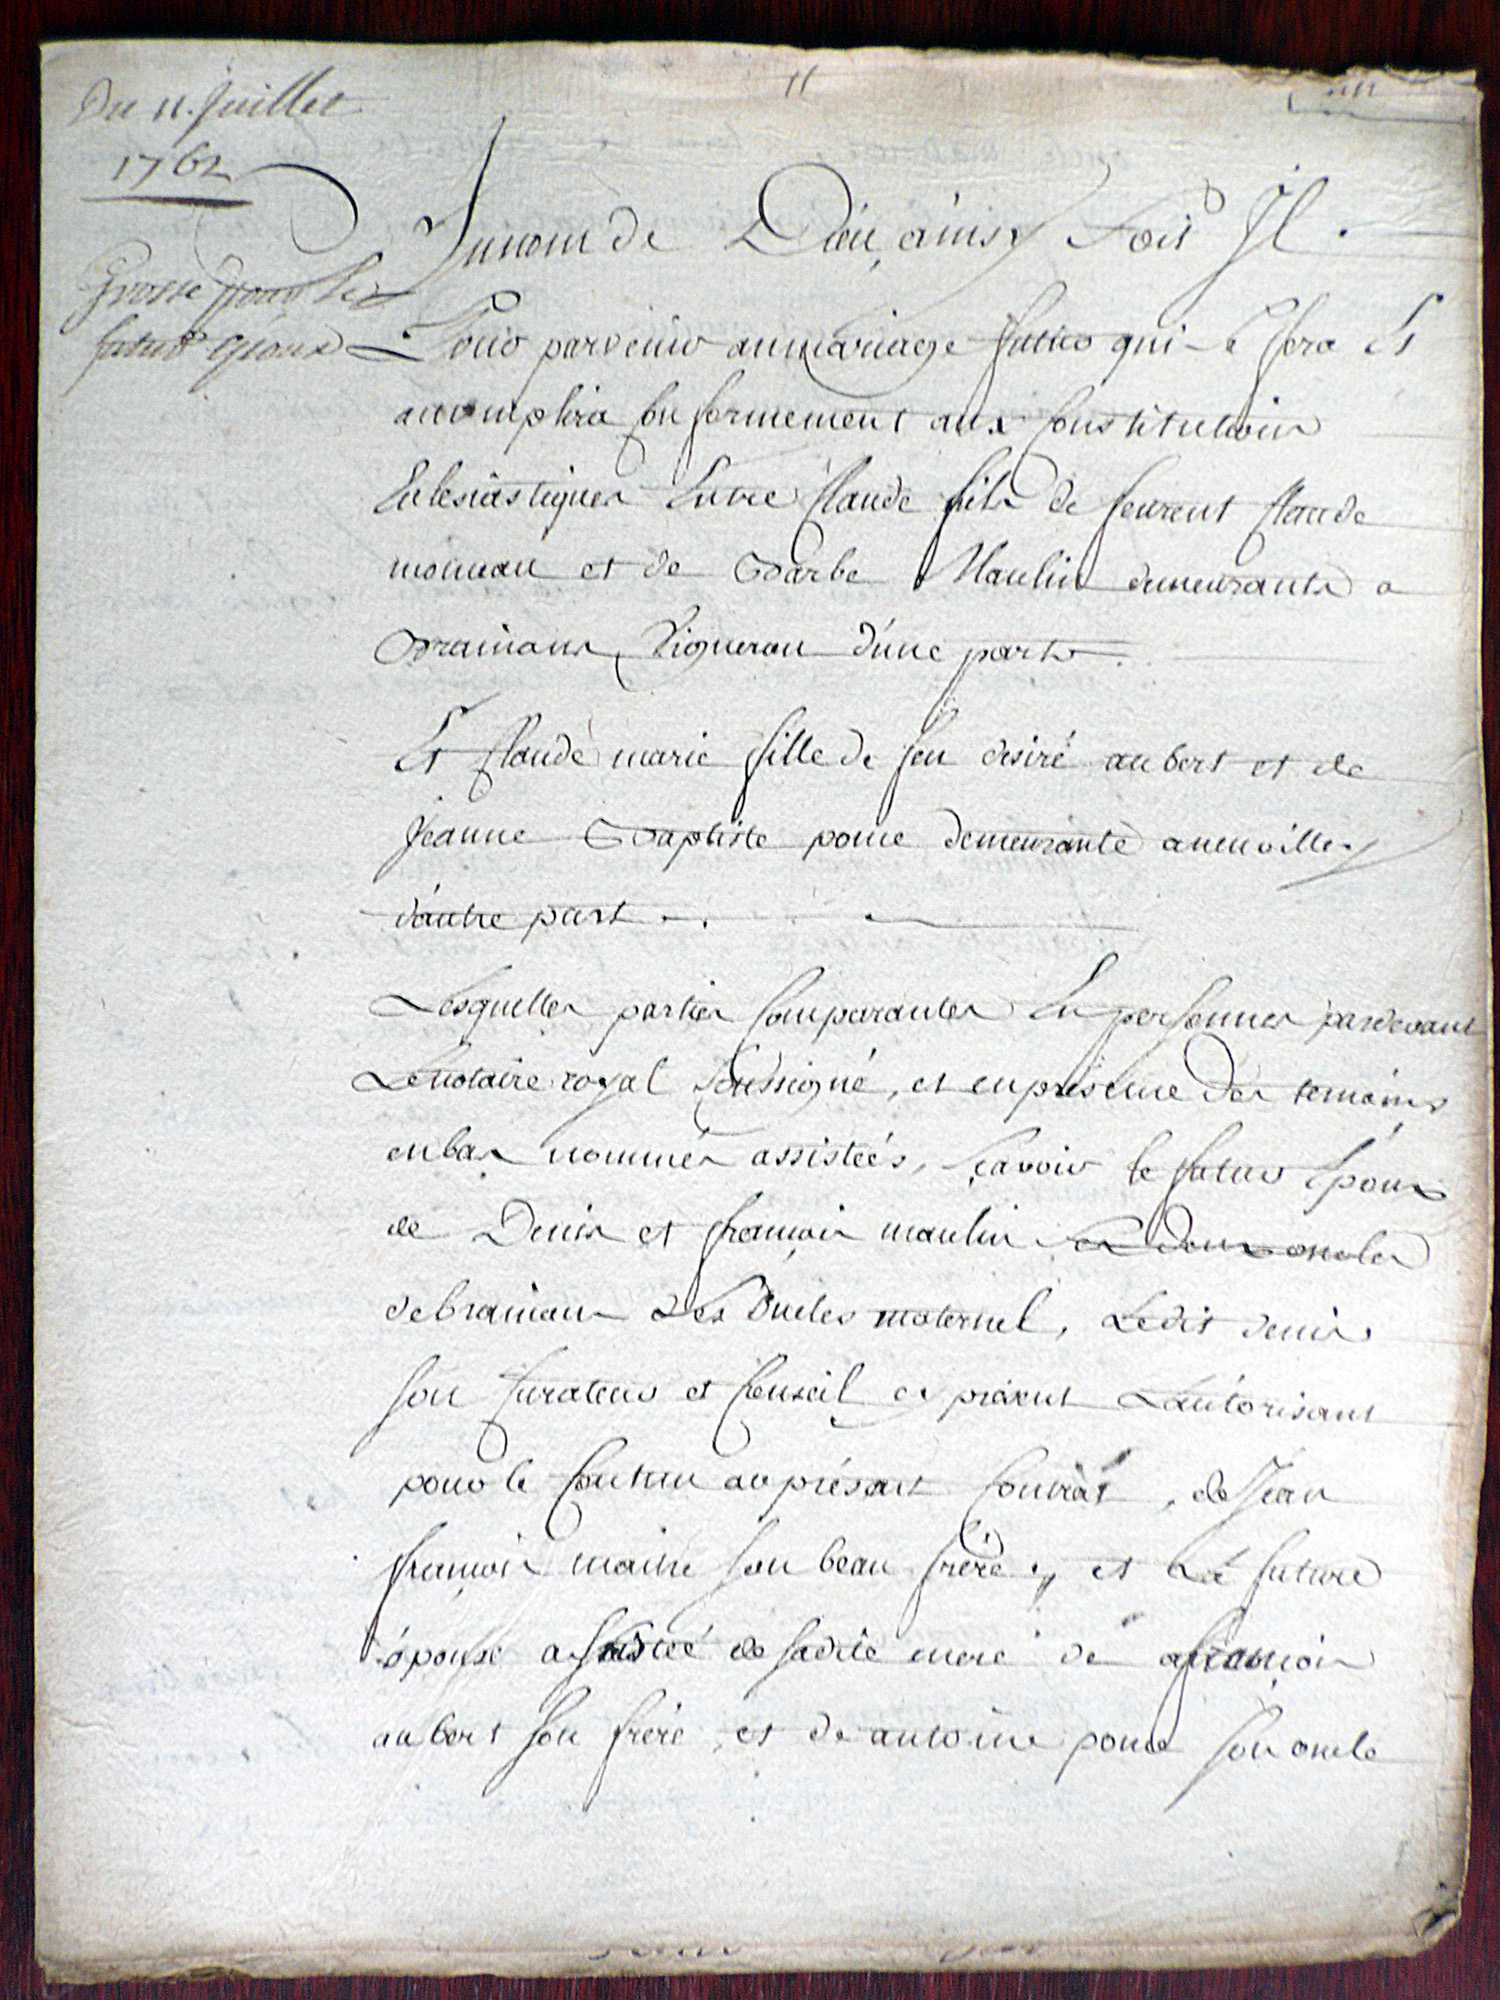 Du 11. Juillet
1762
11
Grosse pour le
futur époux
Au nom de Dieu, ainsy soit Il.
Pour parvenir au mariage futur qui se fera Et
accomplira Conformement aux Constitutions
Eclesiastiques Entre Claude fils de feurent Claude
monneau et de Barbe Maulin demeurants a
Brainans, Vigneron d'une part.
Et Claude marie fille de feu desiré aubert et de
Jeanne Baptiste pome demeurante aneuvilley
d'autre part.
Lesquelles parties Comparantes En personnes pardevant
Le notaire royal soussigné, et en présence des temoins
en bas nommés assistées, sçavoir le futur Epoux
de Denis et françois maulin ses deux oncles
de brainans ses Oncles maternel, Ledit denis
son Curateur et Conseil ce présent L'autorisant
pour le Contenu au présent Contrat, de Jean
françois maitre son beau frère, et La future
épouse assistée de sadite mere de françois
aubert son frère, et de antoine pome son oncle